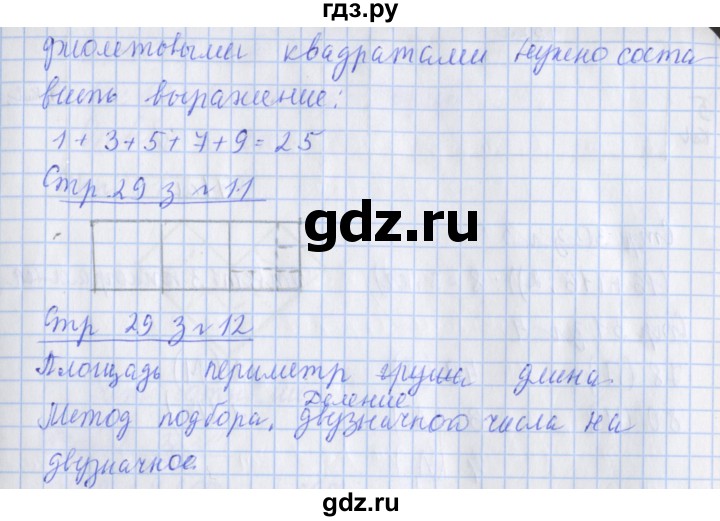 гдз.ру
фиолетовыми квадратами нужно соста
вить выражение:
1 + 3 + 5 + 7 + 9 = 25
Стр 29 з № 11
gdz.ru
Стр 29 з № 12
Площадь периметр груша длина.
Деление
Метод подбора. двузначного числа на
двузначное.
gdz.ru